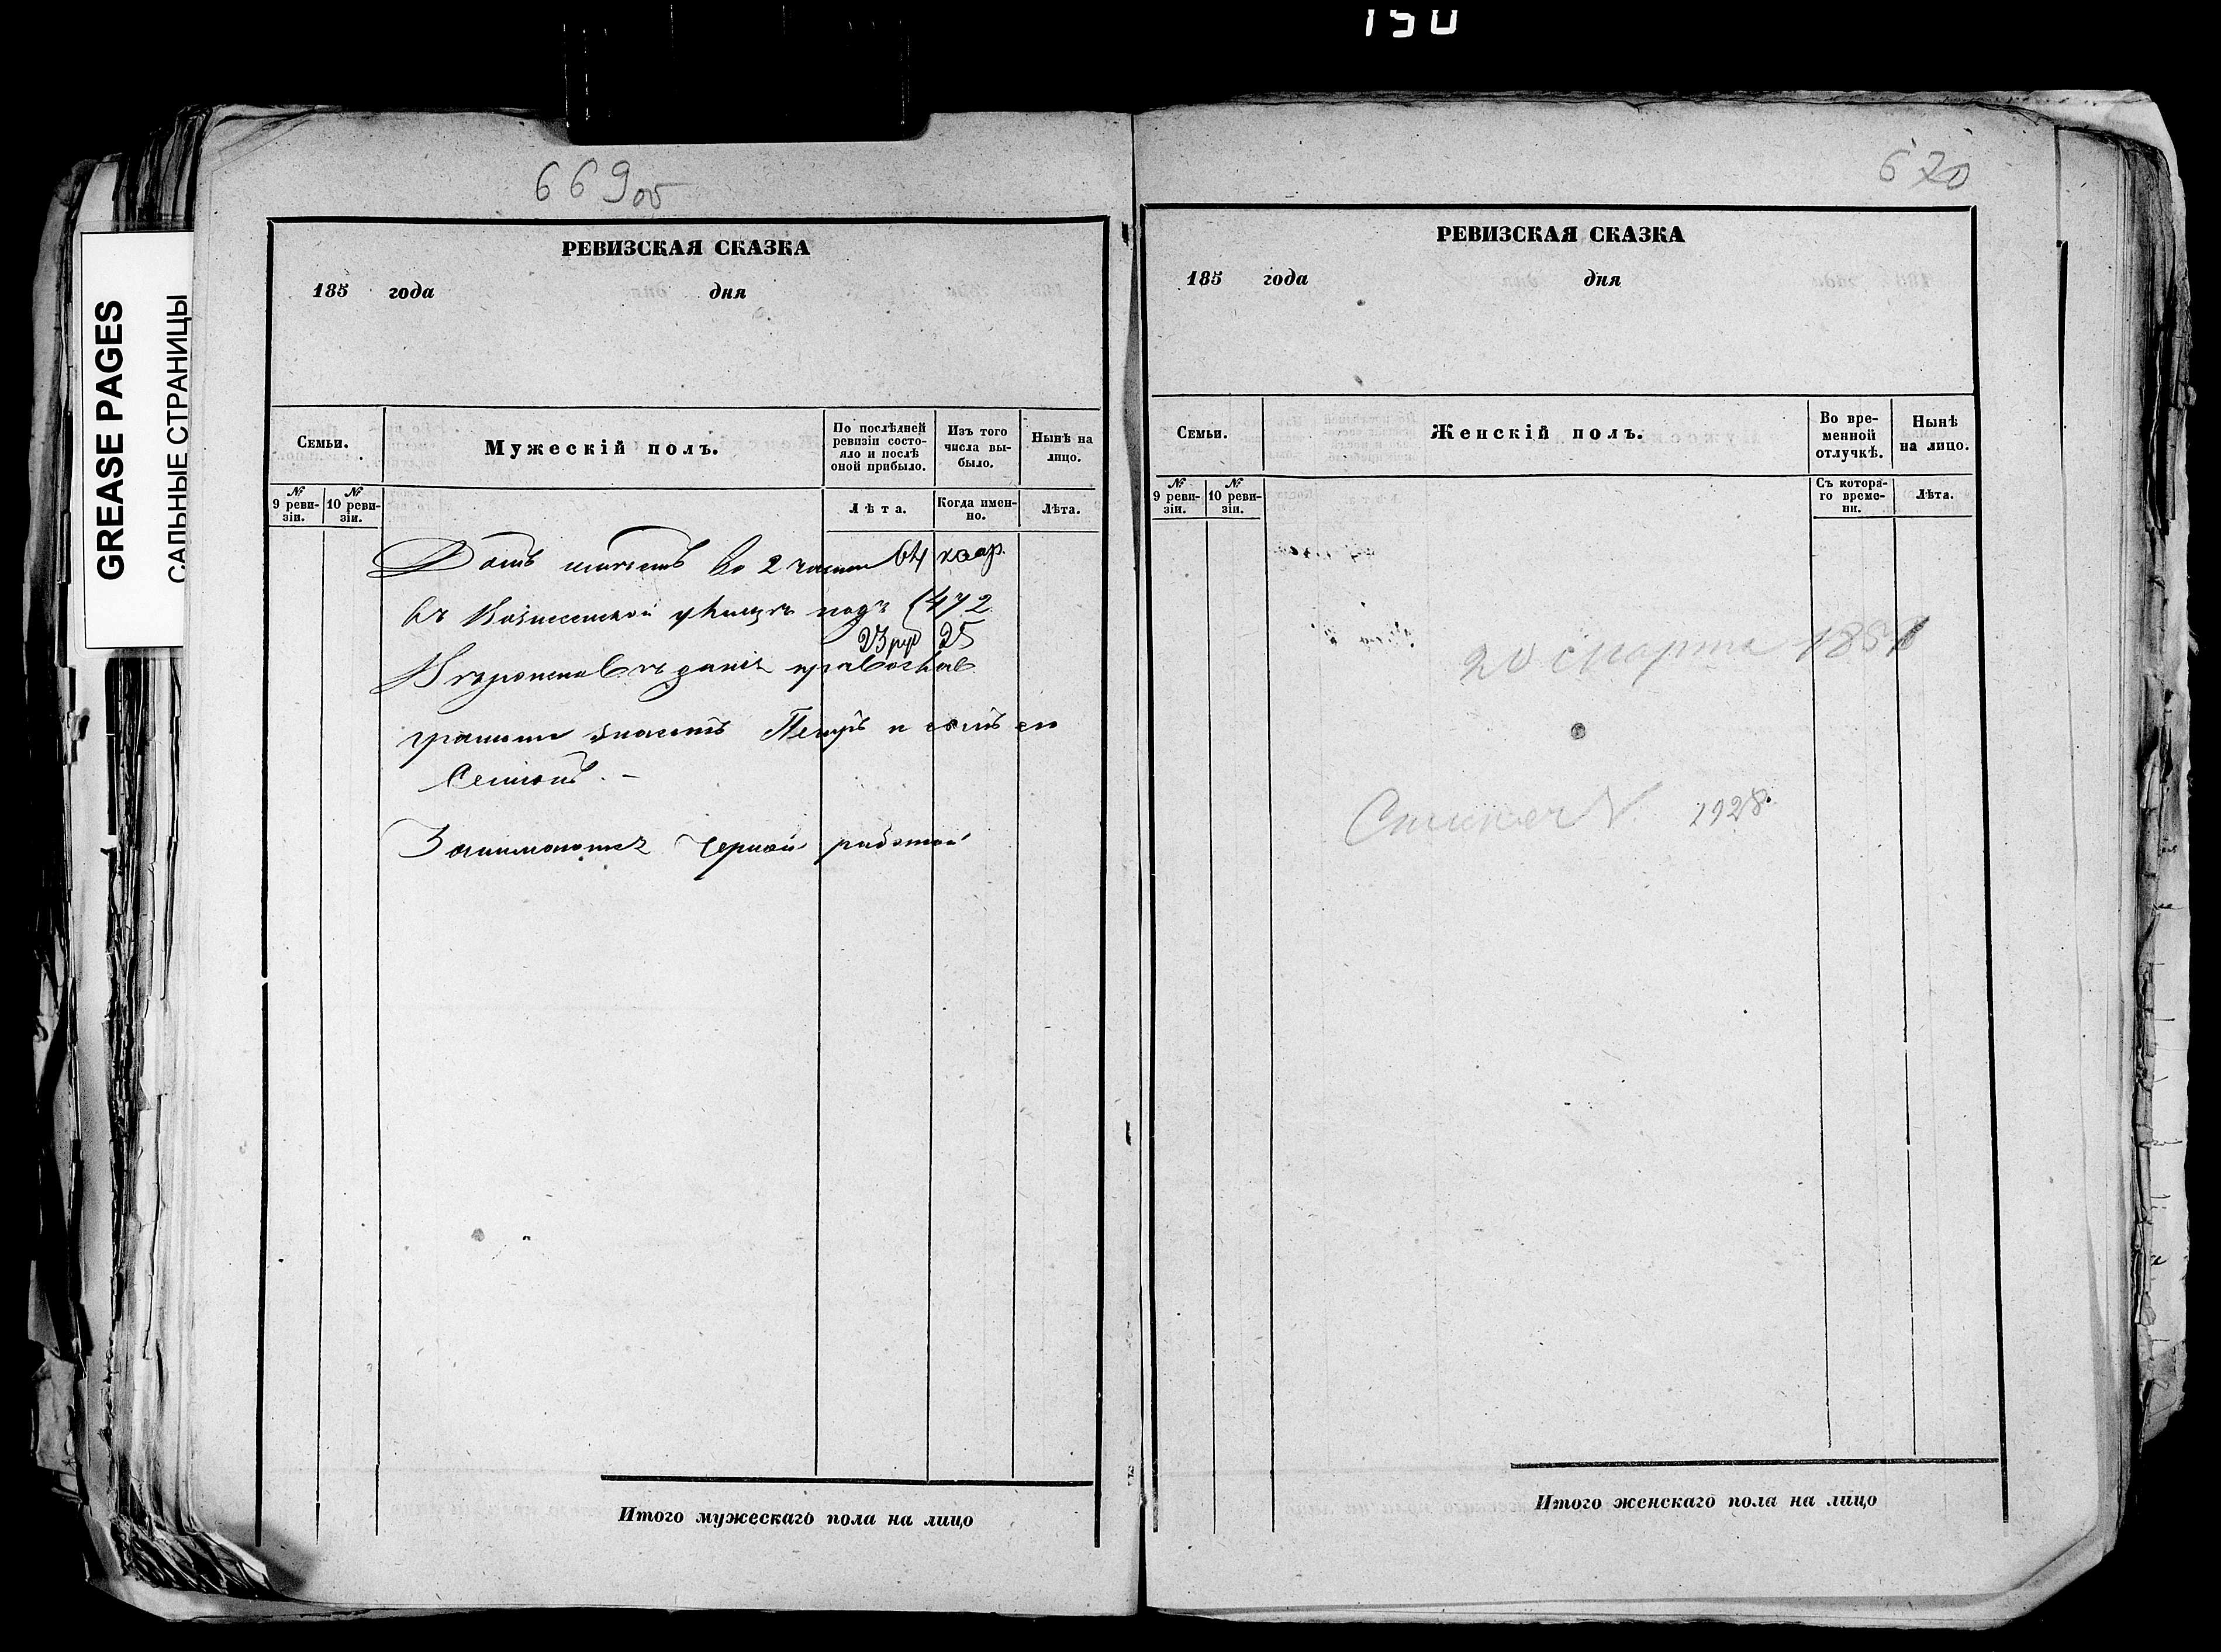 150
GREASE PAGES
САЛЬНЫЕ СТРАНИЦЫ
669об
РЕВИЗСКАЯ СКАЗКА
185 года дня
Семьи.
Мужескій полъ.
По послѣдней ревизіи состо-
яло и послѣ
оной прибыло.
Изъ того
числа вы-
было.
Нынѣ на
лицо.
№
9 реви-
зіи.
№
10 реви-
зіи.
Лѣта.
Когда имен-
но.
Лѣта.
Домъ имѣетъ во 2 части 64 квар.
въ Вознесенской улицѣ подъ 472
23 руб 25
Вѣроисповѣданія православ
грамотѣ знаетъ Петръ и сынъ его
Семенъ. –
Занимаются черной работой
Итого мужескаго пола на лицо
670
РЕВИЗСКАЯ СКАЗКА
185 года дня
Семьи.
Женскій полъ.
Во вре-
менной
отлучкѣ.
Нынѣ
на лицо.
№
9 реви-
зіи.
№
10 реви-
зіи.
Съ котора-
го време-
ни.
Лѣта.
20 марта 1851
1928.
Итого женскаго пола на лицо